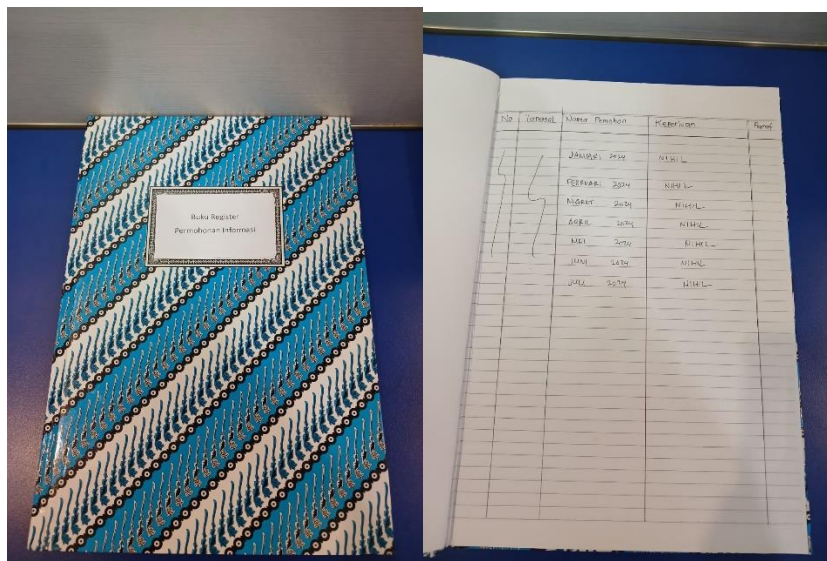 Buku Register
Permohonan Informasi
No Tanggal Nama Pemohon Keperluan Paraf
JANUARI 2024 NIHIL
FEBRUARI 2024 NIHIL
MARET 2024 NIHIL
APRIL 2024 NIHIL
MEI 2024 NIHIL
JUNI 2024 NIHIL
JULI 2024 NIHIL